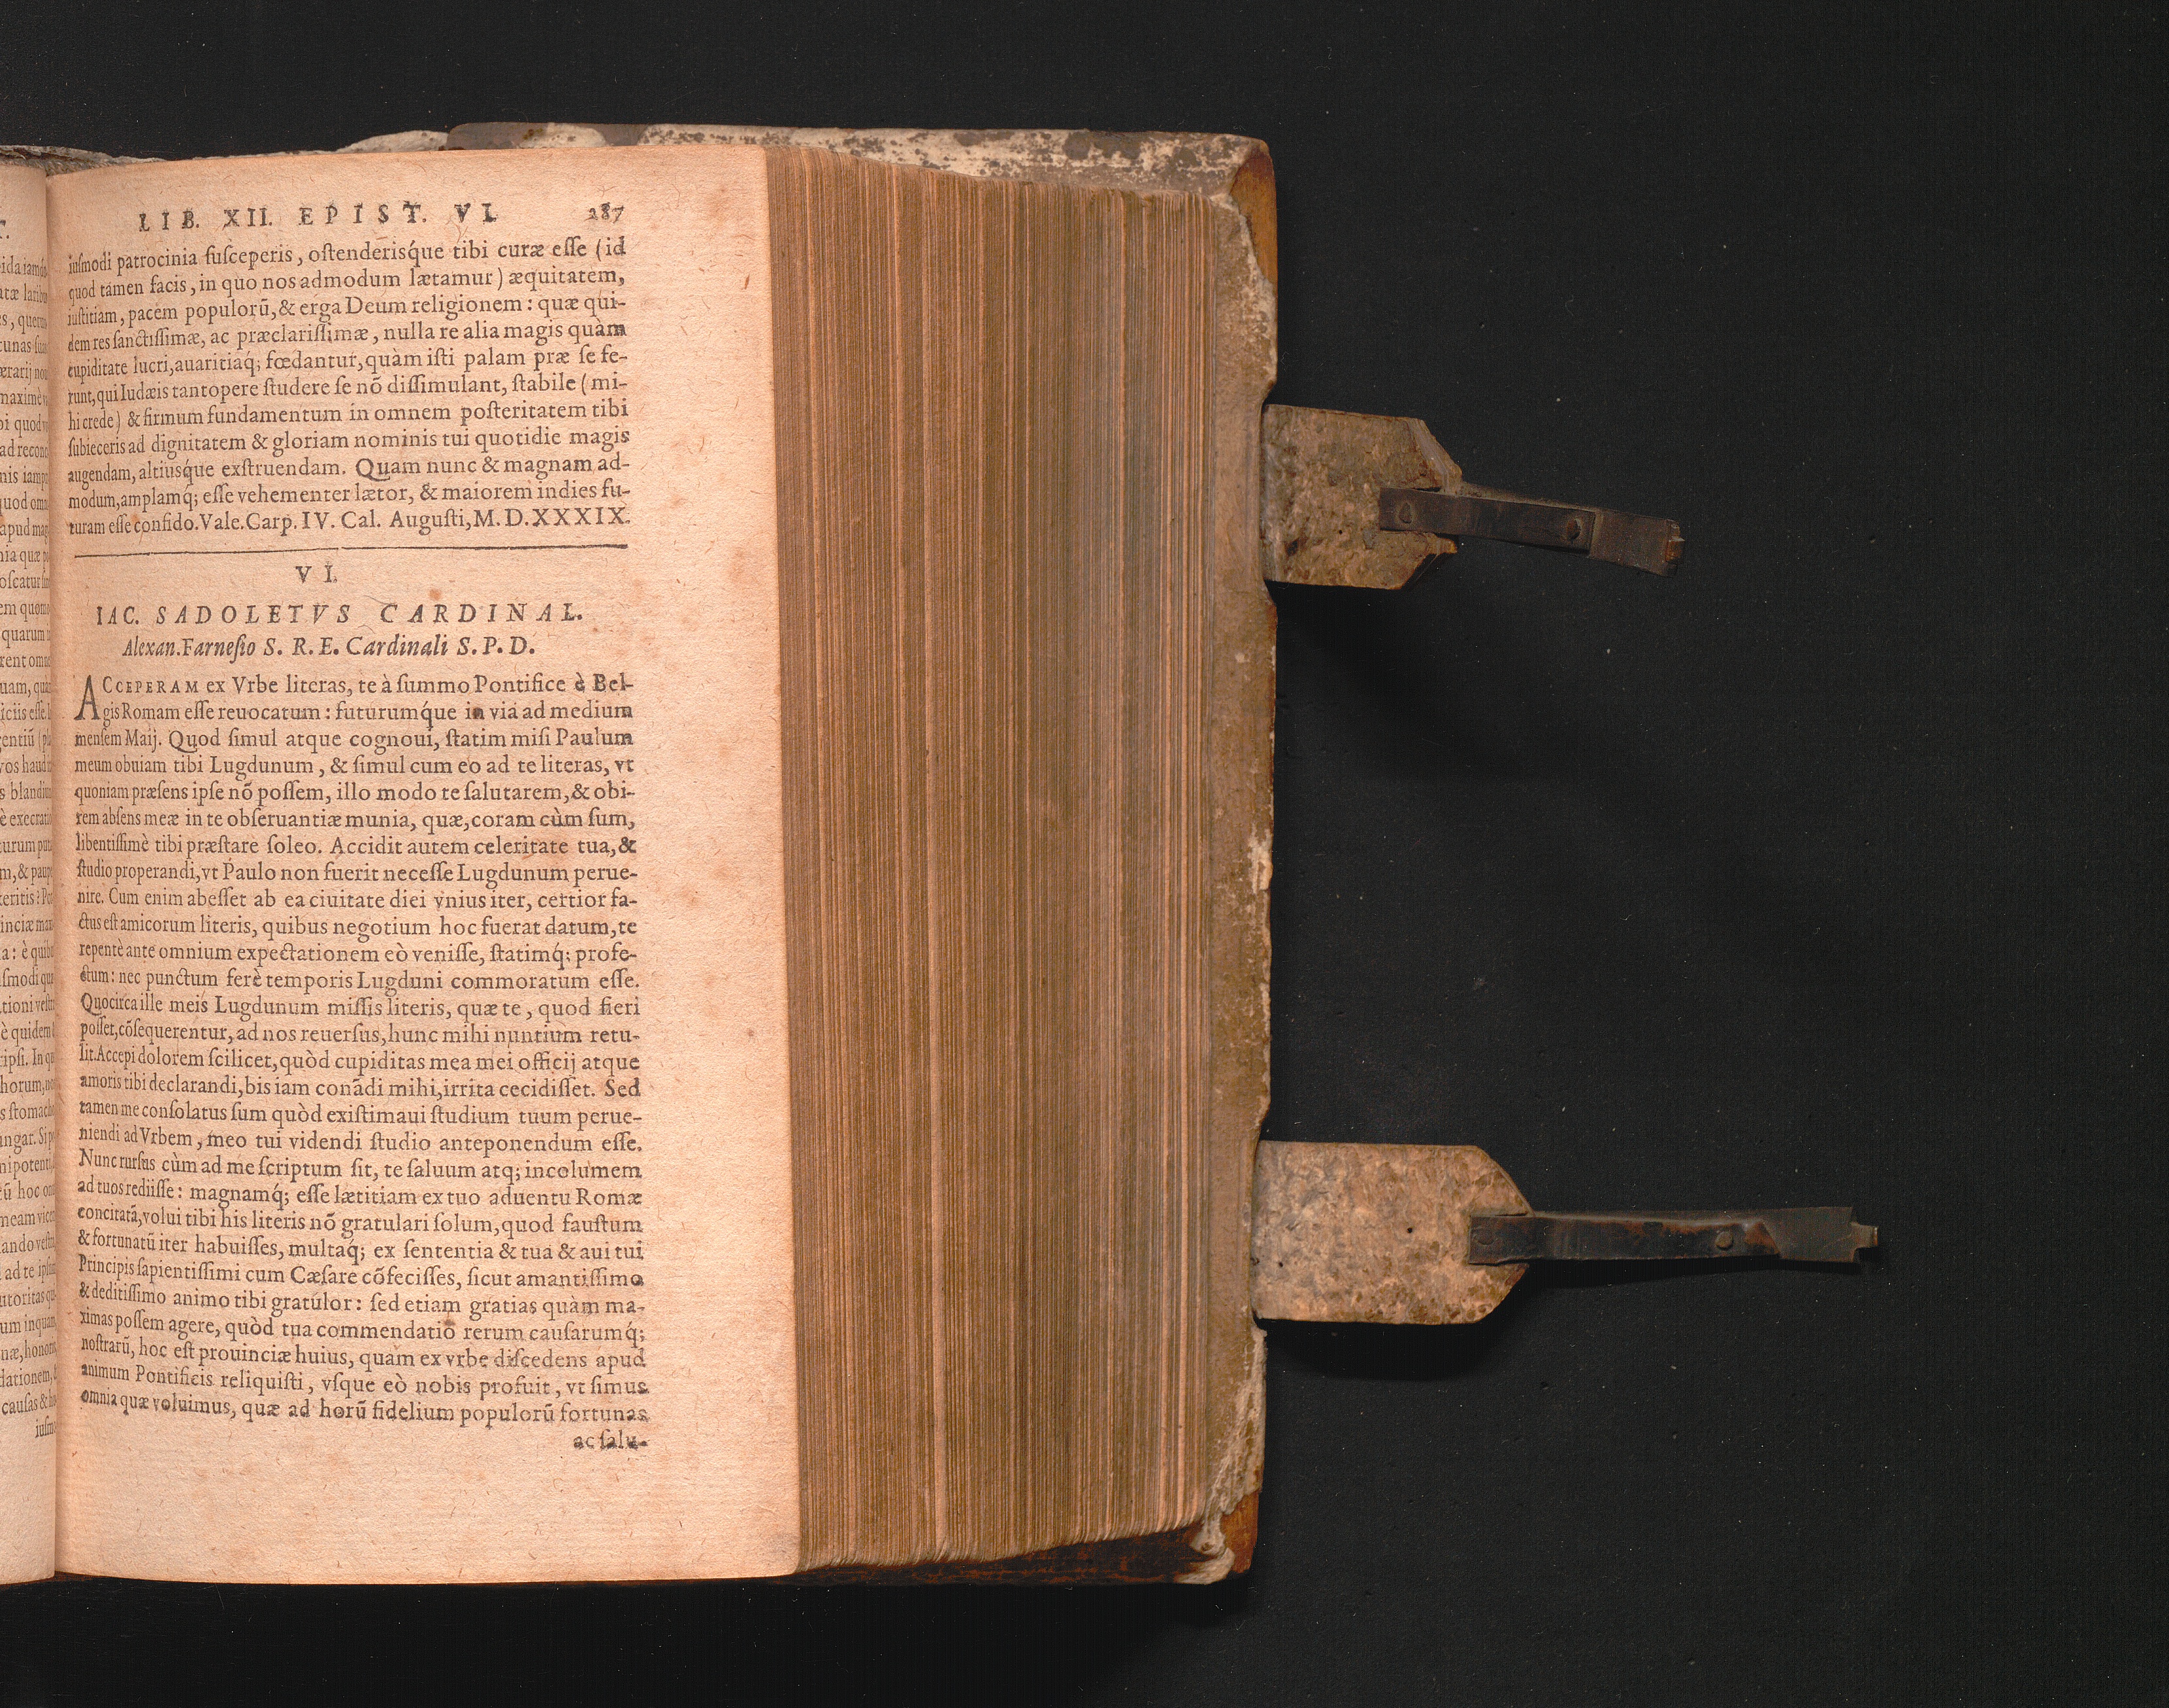 LIB. XII. EPIST. VI. 287
iuſmodi patrocinia ſuſceperis, oſtenderiſq́ue tibi curæ eſſe (id
quod tamen facis, in quo nos admodum lætamur) æquitatem,
iuſtitiam, pacem populorũ, & erga Deum religionem: quæ qui-
dem res ſanctiſſimæ, ac præclariſſimæ, nulla re alia magis quàm
cupiditate lucri, auaritiaq́; fœdantur, quàm iſti palam præ ſe fe-
runt, qui Iudæis tantopere ſtudere ſe nõ diſſimulant, ſtabile (mi-
hi crede) & firmum fundamentum in omnem poſteritatem tibi
ſubieceris ad dignitatem & gloriam nominis tui quotidie magis
augendam, altiuſq́ue exſtruendam. Quam nunc & magnam ad-
modum, amplamq́; eſſe vehementer lætor, & maiorem indies fu-
turam eſſe confido. Vale. Carp. IV. Cal. Auguſti, M. D. XXXIX.
VI.
IAC. SADOLETVS CARDINAL.
Alexan. Farneſio S. R. E. Cardinali S. P. D.
ACCEPERAM ex Vrbe literas, te à ſummo Pontifice è Bel-
gis Romam eſſe reuocatum: futurumq́ue in via ad medium
menſem Maij. Quod ſimul atque cognoui, ſtatim miſi Paulum
meum obuiam tibi Lugdunum, & ſimul cum eo ad te literas, vt
quoniam præſens ipſe nõ poſſem, illo modo te ſalutarem, & obi-
rem abſens meæ in te obſeruantiæ munia, quæ, coram cùm ſum,
libentiſſimè tibi præſtare ſoleo. Accidit autem celeritate tua, &
ſtudio properandi, vt Paulo non fuerit neceſſe Lugdunum perue-
nire. Cum enim abeſſet ab ea ciuitate diei vnius iter, certior fa-
ctus eſt amicorum literis, quibus negotium hoc fuerat datum, te
repentè ante omnium expectationem eò veniſſe, ſtatimq́; profe-
ctum: nec punctum ferè temporis Lugduni commoratum eſſe.
Quocirca ille meis Lugdunum miſſis literis, quæ te, quod fieri
poſſet, cõſequerentur, ad nos reuerſus, hunc mihi nuntium retu-
lit. Accepi dolorem ſcilicet, quòd cupiditas mea mei officij atque
amoris tibi declarandi, bis iam conãdi mihi, irrita cecidiſſet. Sed
tamen me conſolatus ſum quòd exiſtimaui ſtudium tuum perue-
niendi ad Vrbem, meo tui videndi ſtudio anteponendum eſſe.
Nunc rurſus cùm ad me ſcriptum ſit, te ſaluum atq; incolumem
ad tuos rediiſſe: magnamq́; eſſe lætitiam ex tuo aduentu Romæ
concitatã, volui tibi his literis nõ gratulari ſolum, quod fauſtum
& fortunatũ iter habuiſſes, multaq́; ex ſententia & tua & aui tui
Principis ſapientiſſimi cum Cæſare cõfeciſſes, ſicut amantiſſimo
& deditiſſimo animo tibi gratulor: ſed etiam gratias quàm ma-
ximas poſſem agere, quòd tua commendatio rerum cauſarumq́;
noſtrarũ, hoc eſt prouinciæ huius, quam ex vrbe diſcedens apud
animum Pontificis reliquiſti, vſque eò nobis profuit, vt ſimus
omnia quæ voluimus, quæ ad horũ fidelium populorũ fortunas
ac ſalu-